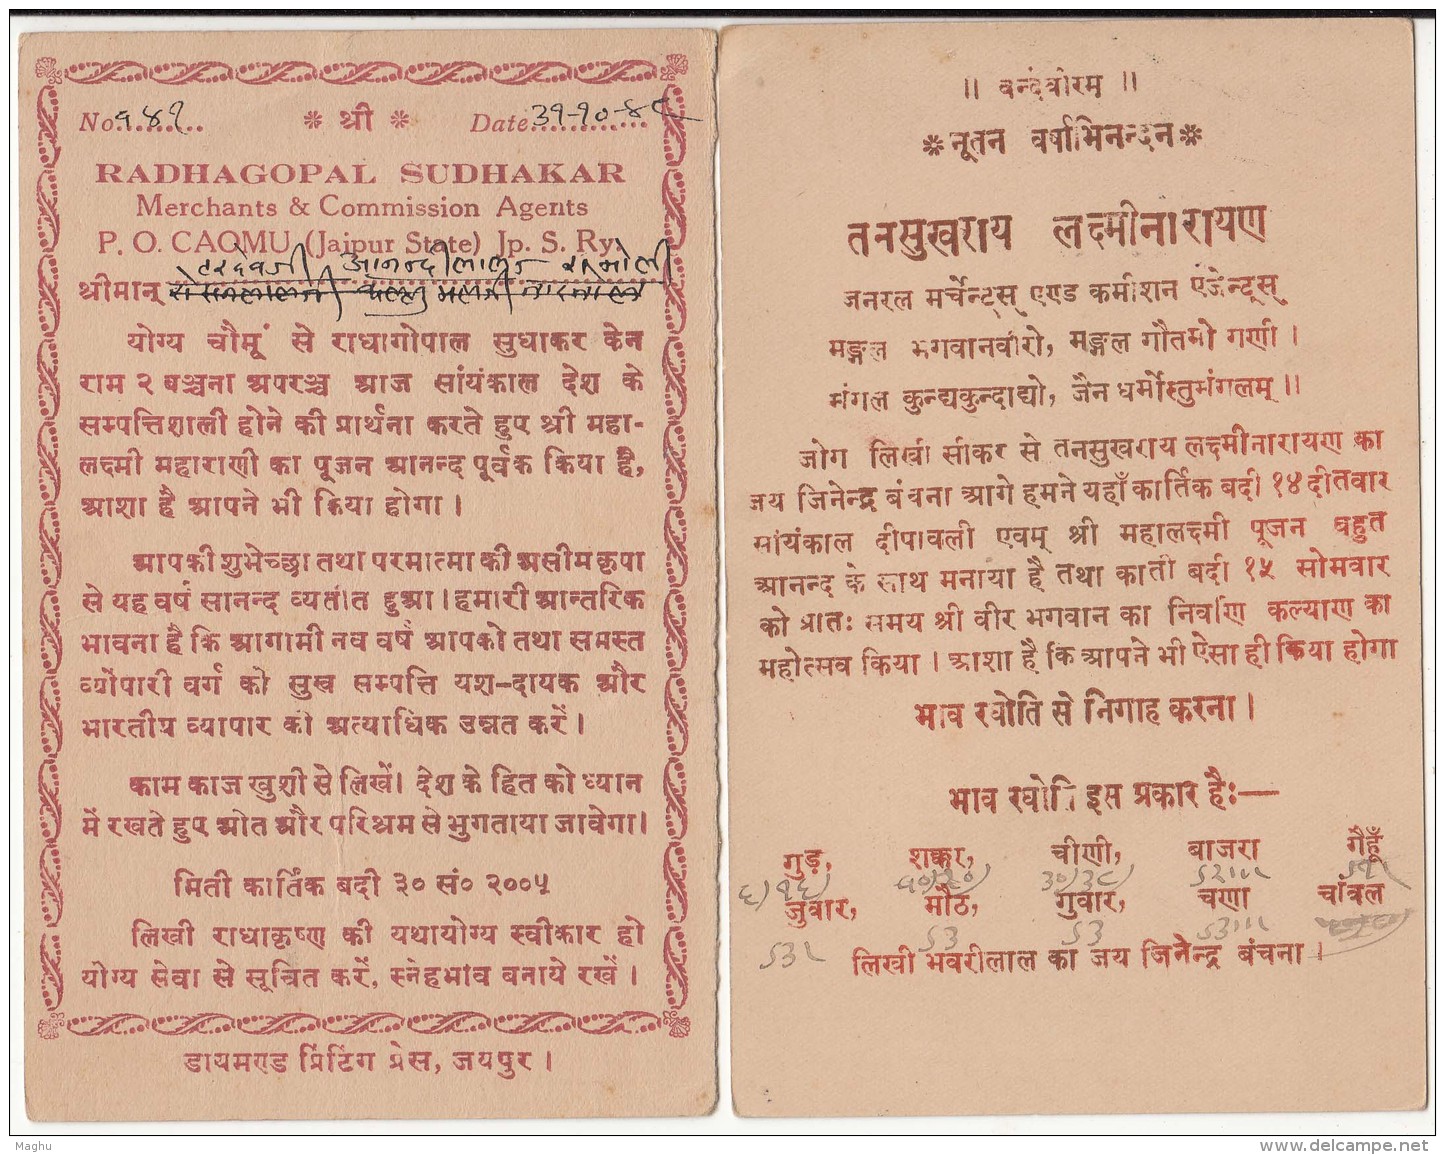 No. १४१ * श्री * Date 31-10-48
RADHAGOPAL SUDHAKAR
Merchants & Commission Agents
P. O. CAOMU (Jaipur State) Jp. S. Ry.
आनन्दीलाल
श्रीमान्
योग्य चौमूं से राधागोपाल सुधाकर केन
राम २ बञ्चना अपरञ्च आज सांयंकाल देश के
सम्पत्तिशाली होने की प्रार्थना करते हुए श्री महा-
लक्ष्मी महाराणी का पूजन आनन्द पूर्वक किया है,
आशा है आपने भी किया होगा ।
आपकी शुभेच्छा तथा परमात्मा की असीम कृपा
से यह वर्ष सानन्द व्यतीत हुआ । हमारी आन्तरिक
भावना है कि आगामी नव वर्ष आपको तथा समस्त
व्योपारी वर्ग को सुख सम्पत्ति यश-दायक और
भारतीय व्यापार को अत्याधिक उन्नत करें ।
काम काज खुशी से लिखें। देश के हित को ध्यान
में रखते हुए ओत और परिश्रम से भुगताया जावेगा।
मिती कार्तिक बदी ३० सं० २००५
लिखी राधाकृष्ण की यथायोग्य स्वीकार हो
योग्य सेवा से सूचित करें, स्नेहभाव बनाये रखें ।
डायमण्ड प्रिंटिंग प्रेस, जयपुर ।
॥ वन्देवीरम् ॥
* नूतन वर्षाभिनन्दन *
तनसुखराय लक्ष्मीनारायण
जनरल मर्चेन्ट्स् एण्ड कमीशन एजेन्ट्स्
मङ्गल भगवानवीरो, मङ्गल गौतमो गणी ।
मंगल कुन्द्यकुन्दाद्यो, जैन धर्मोस्तुमंगलम् ॥
जोग लिखी सीकर से तनसुखराय लक्ष्मीनारायण का
जय जिनेन्द्र बंचना आगे हमने यहाँ कार्तिक बदी १४ दीतवार
सांयंकाल दीपावली एवम् श्री महालक्ष्मी पूजन बहुत
आनन्द के साथ मनाया है तथा काती बदी १५ सोमवार
को प्रातः समय श्री वीर भगवान का निर्वाण कल्याण का
महोत्सव किया । आशा है कि आपने भी ऐसा ही किया होगा
भाव रवोति से निगाह करना ।
भाव रवोति इस प्रकार है:—
गुड़, शक्कर, चीणी, बाजरा गेहूँ
६) १६) १०)२०) ३०)३८)
जुवार, मौठ, गुवार, चणा चांवल
लिखी भवरीलाल का जय जिनेन्द्र बंचना ।
Maghu
www.delcampe.net